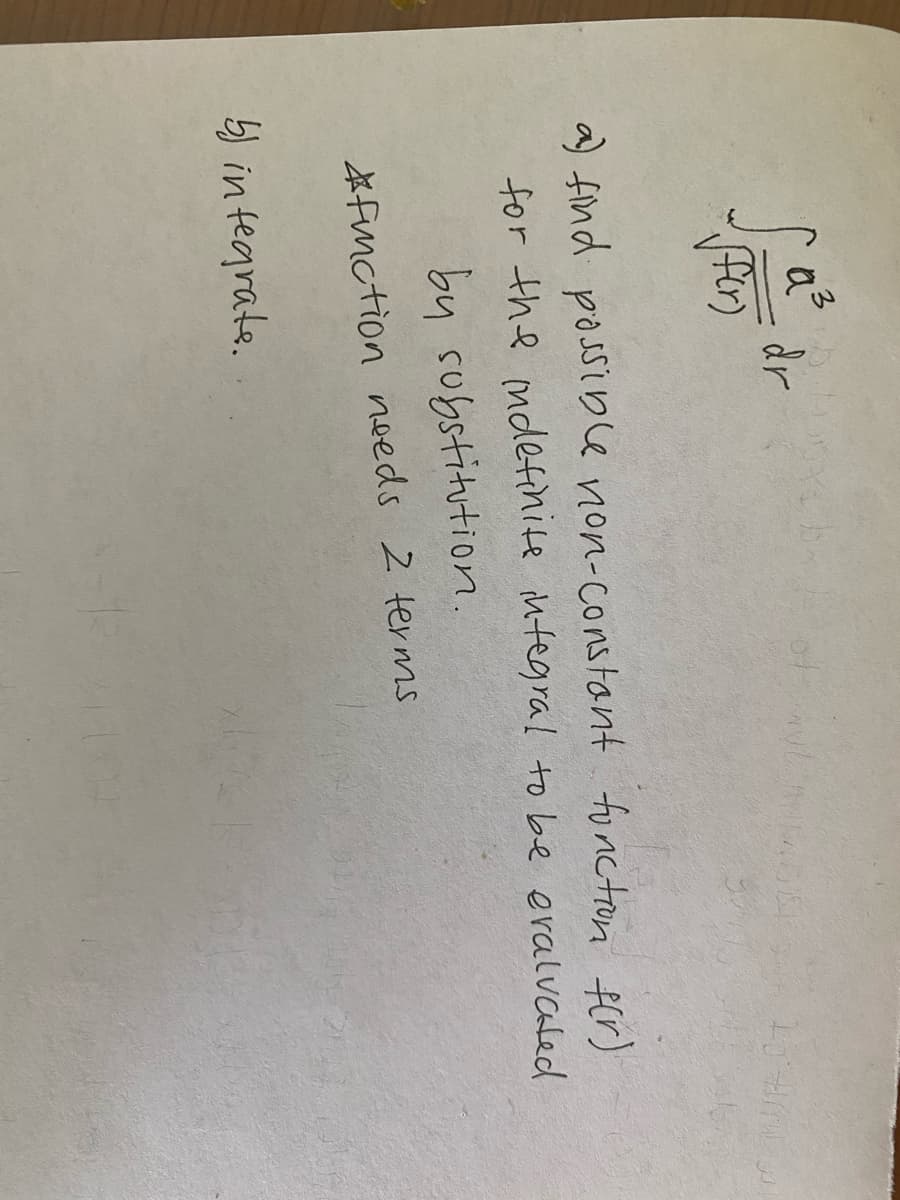 ∫ a³/√f(r) dr
a) find possible non-constant function f(r)
for the indefinite integral to be evaluated
by substitution.
*function needs 2 terms
b) integrate.